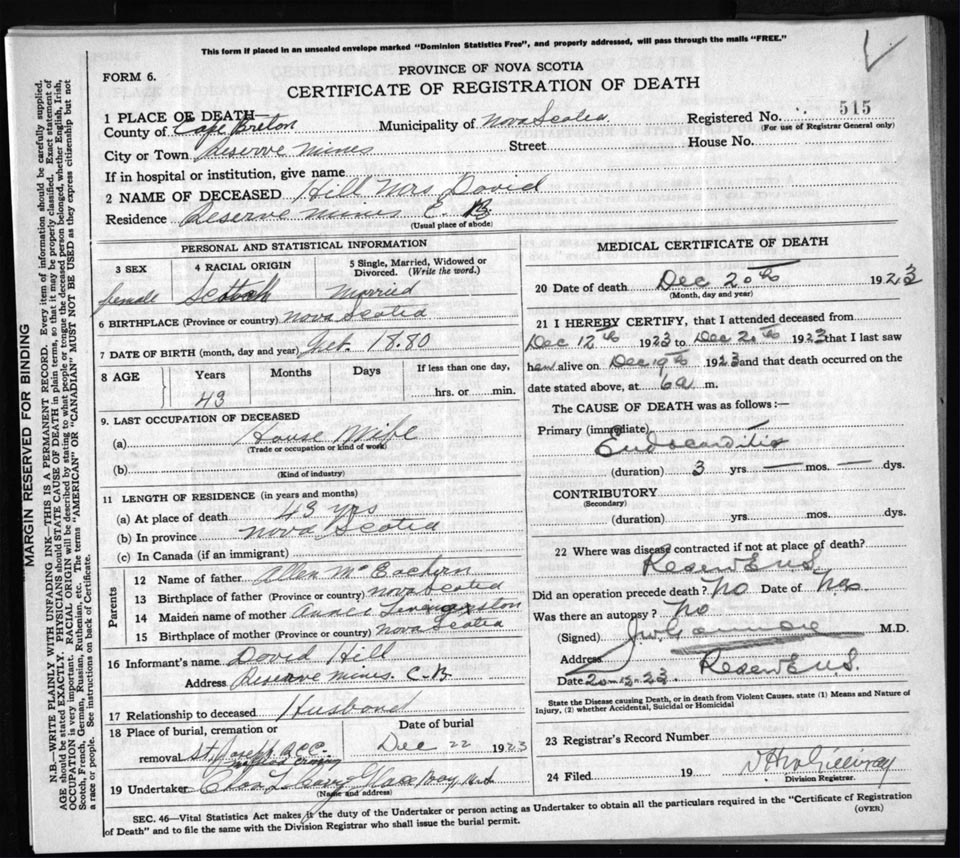 This form if placed in an unsealed envelope marked "Dominion Statistics Free", and properly addressed, will pass through the mails "FREE."
FORM 6.
PROVINCE OF NOVA SCOTIA
CERTIFICATE OF REGISTRATION OF DEATH
1 PLACE OF DEATH—
County of Cape Breton Municipality of Nova Scotia Registered No. 515
(For use of Registrar General only)
City or Town Reserve Mines Street House No.
If in hospital or institution, give name
2 NAME OF DECEASED Hill Mrs David
Residence Reserve Mines C. B.
(Usual place of abode)
PERSONAL AND STATISTICAL INFORMATION
3 SEX 4 RACIAL ORIGIN 5 Single, Married, Widowed or Divorced. (Write the word.)
female Scotch Married
6 BIRTHPLACE (Province or country) Nova Scotia
7 DATE OF BIRTH (month, day and year) 1880
8 AGE Years Months Days If less than one day,
43 hrs. or min.
9. LAST OCCUPATION OF DECEASED
(a) House Wife
(Trade or occupation or kind of work)
(b)
(Kind of industry)
11 LENGTH OF RESIDENCE (in years and months)
(a) At place of death 43 yrs
(b) In province Nova Scotia
(c) In Canada (if an immigrant)
Parents
12 Name of father Allen McEachern
13 Birthplace of father (Province or country) Nova Scotia
14 Maiden name of mother Livingston
15 Birthplace of mother (Province or country) Nova Scotia
16 Informant's name David Hill
Address Reserve Mines. C.B.
17 Relationship to deceased Husband
18 Place of burial, cremation or removal Date of burial
St. Joseph Dec 22 1923
19 Undertaker Glace Bay
(Name and address)
MEDICAL CERTIFICATE OF DEATH
20 Date of death Dec 20th 1923
(Month, day and year)
21 I HEREBY CERTIFY, that I attended deceased from
Dec 12th 1923 to Dec 20th 1923 that I last saw
her alive on Dec 19th 1923 and that death occurred on the
date stated above, at 6a m.
The CAUSE OF DEATH was as follows:—
Primary (immediate)
Endocarditis
(duration) 3 yrs. — mos. — dys.
CONTRIBUTORY
(Secondary)
(duration) yrs. mos. dys.
22 Where was disease contracted if not at place of death?
Reserve
Did an operation precede death? No Date of
Was there an autopsy? No
(Signed) M.D.
Address Reserve
Date 20-12-23.
State the Disease causing Death, or in death from Violent Causes, state (1) Means and Nature of
Injury, (2) whether Accidental, Suicidal or Homicidal
23 Registrar's Record Number
24 Filed 19
Division Registrar.
SEC. 46—Vital Statistics Act makes it the duty of the Undertaker or person acting as Undertaker to obtain all the particulars required in the "Certificate of Registration
of Death" and to file the same with the Division Registrar who shall issue the burial permit.
(OVER)
MARGIN RESERVED FOR BINDING
N.B.—WRITE PLAINLY WITH UNFADING INK—THIS IS A PERMANENT RECORD. Every item of information should be carefully supplied.
AGE should be stated EXACTLY. PHYSICIANS should STATE CAUSE OF DEATH in plain terms, so that it may be properly classified. Exact statement of
OCCUPATION is very important. RACIAL ORIGIN will be described by stating to what people or tongue the deceased person belonged, whether English, Irish,
Scotch, French, German, Russian, Ruthenian, etc. The terms "AMERICAN" or "CANADIAN" MUST NOT BE USED as they express citizenship but not
a race or people. See instructions on back of Certificate.